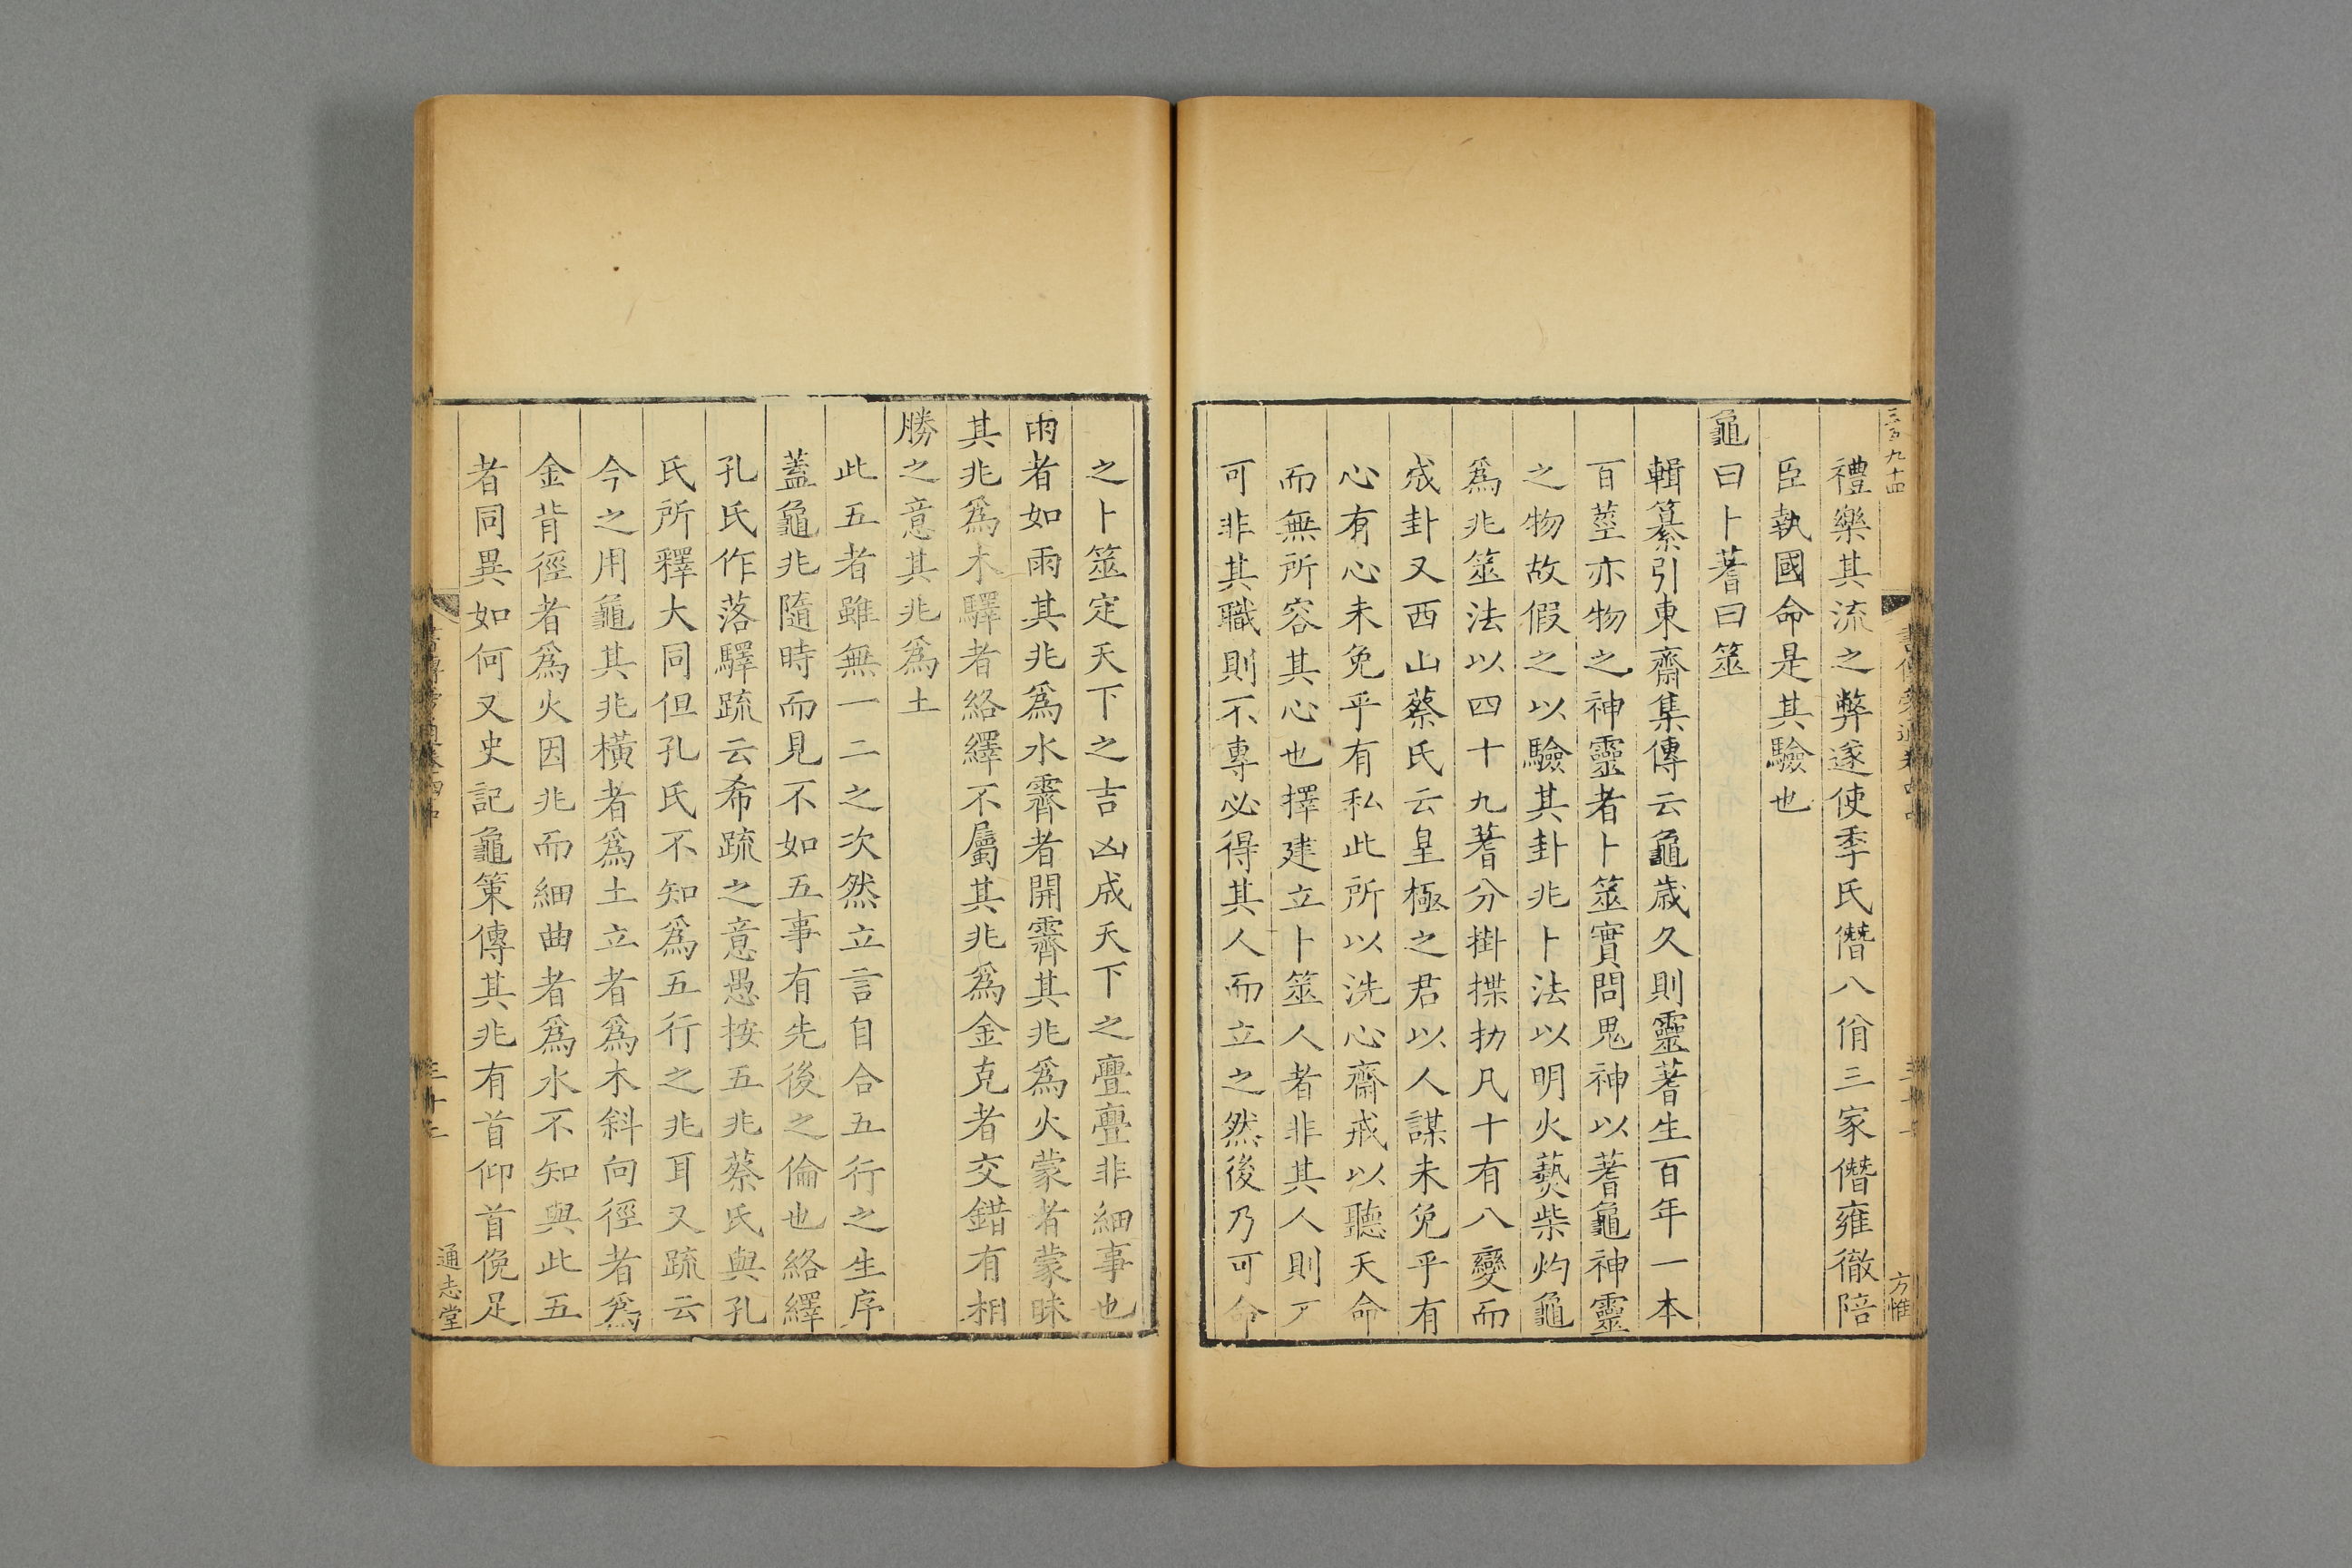 三百九十四
禮樂其流之弊遂使季氏僭八佾三家僭雍徹陪
臣執國命是其驗也
龜曰卜蓍曰筮
輯纂引東齋集傳云龜歲久則靈蓍生百年一本
百莖亦物之神靈者卜筮實問鬼神以蓍龜神靈
之物故假之以驗其卦兆卜法以明火爇柴灼龜
爲兆筮法以四十九蓍分掛揲扐凡十有八變而
成卦又西山蔡氏云皇極之君以人謀未免乎有
心有心未免乎有私此所以洗心齋戒以聽天命
而無所容其心也擇建立卜筮人者非其人則不
可非其職則不專必得其人而立之然後乃可命
方惟
之卜筮定天下之吉凶成天下之亹亹非細事也
雨者如雨其兆爲水霽者開霽其兆爲火蒙者蒙昧
其兆爲木驛者絡繹不屬其兆爲金克者交錯有相
勝之意其兆爲土
此五者雖無一二之次然立言自合五行之生序
蓋龜兆隨時而見不如五事有先後之倫也絡繹
孔氏作落驛疏云希疏之意愚按五兆蔡氏與孔
氏所釋大同但孔氏不知爲五行之兆耳又疏云
今之用龜其兆橫者爲土立者爲木斜向徑者爲
金背徑者爲火因兆而細曲者爲水不知與此五
者同異如何又史記龜策傳其兆有首仰首俛足
通志堂